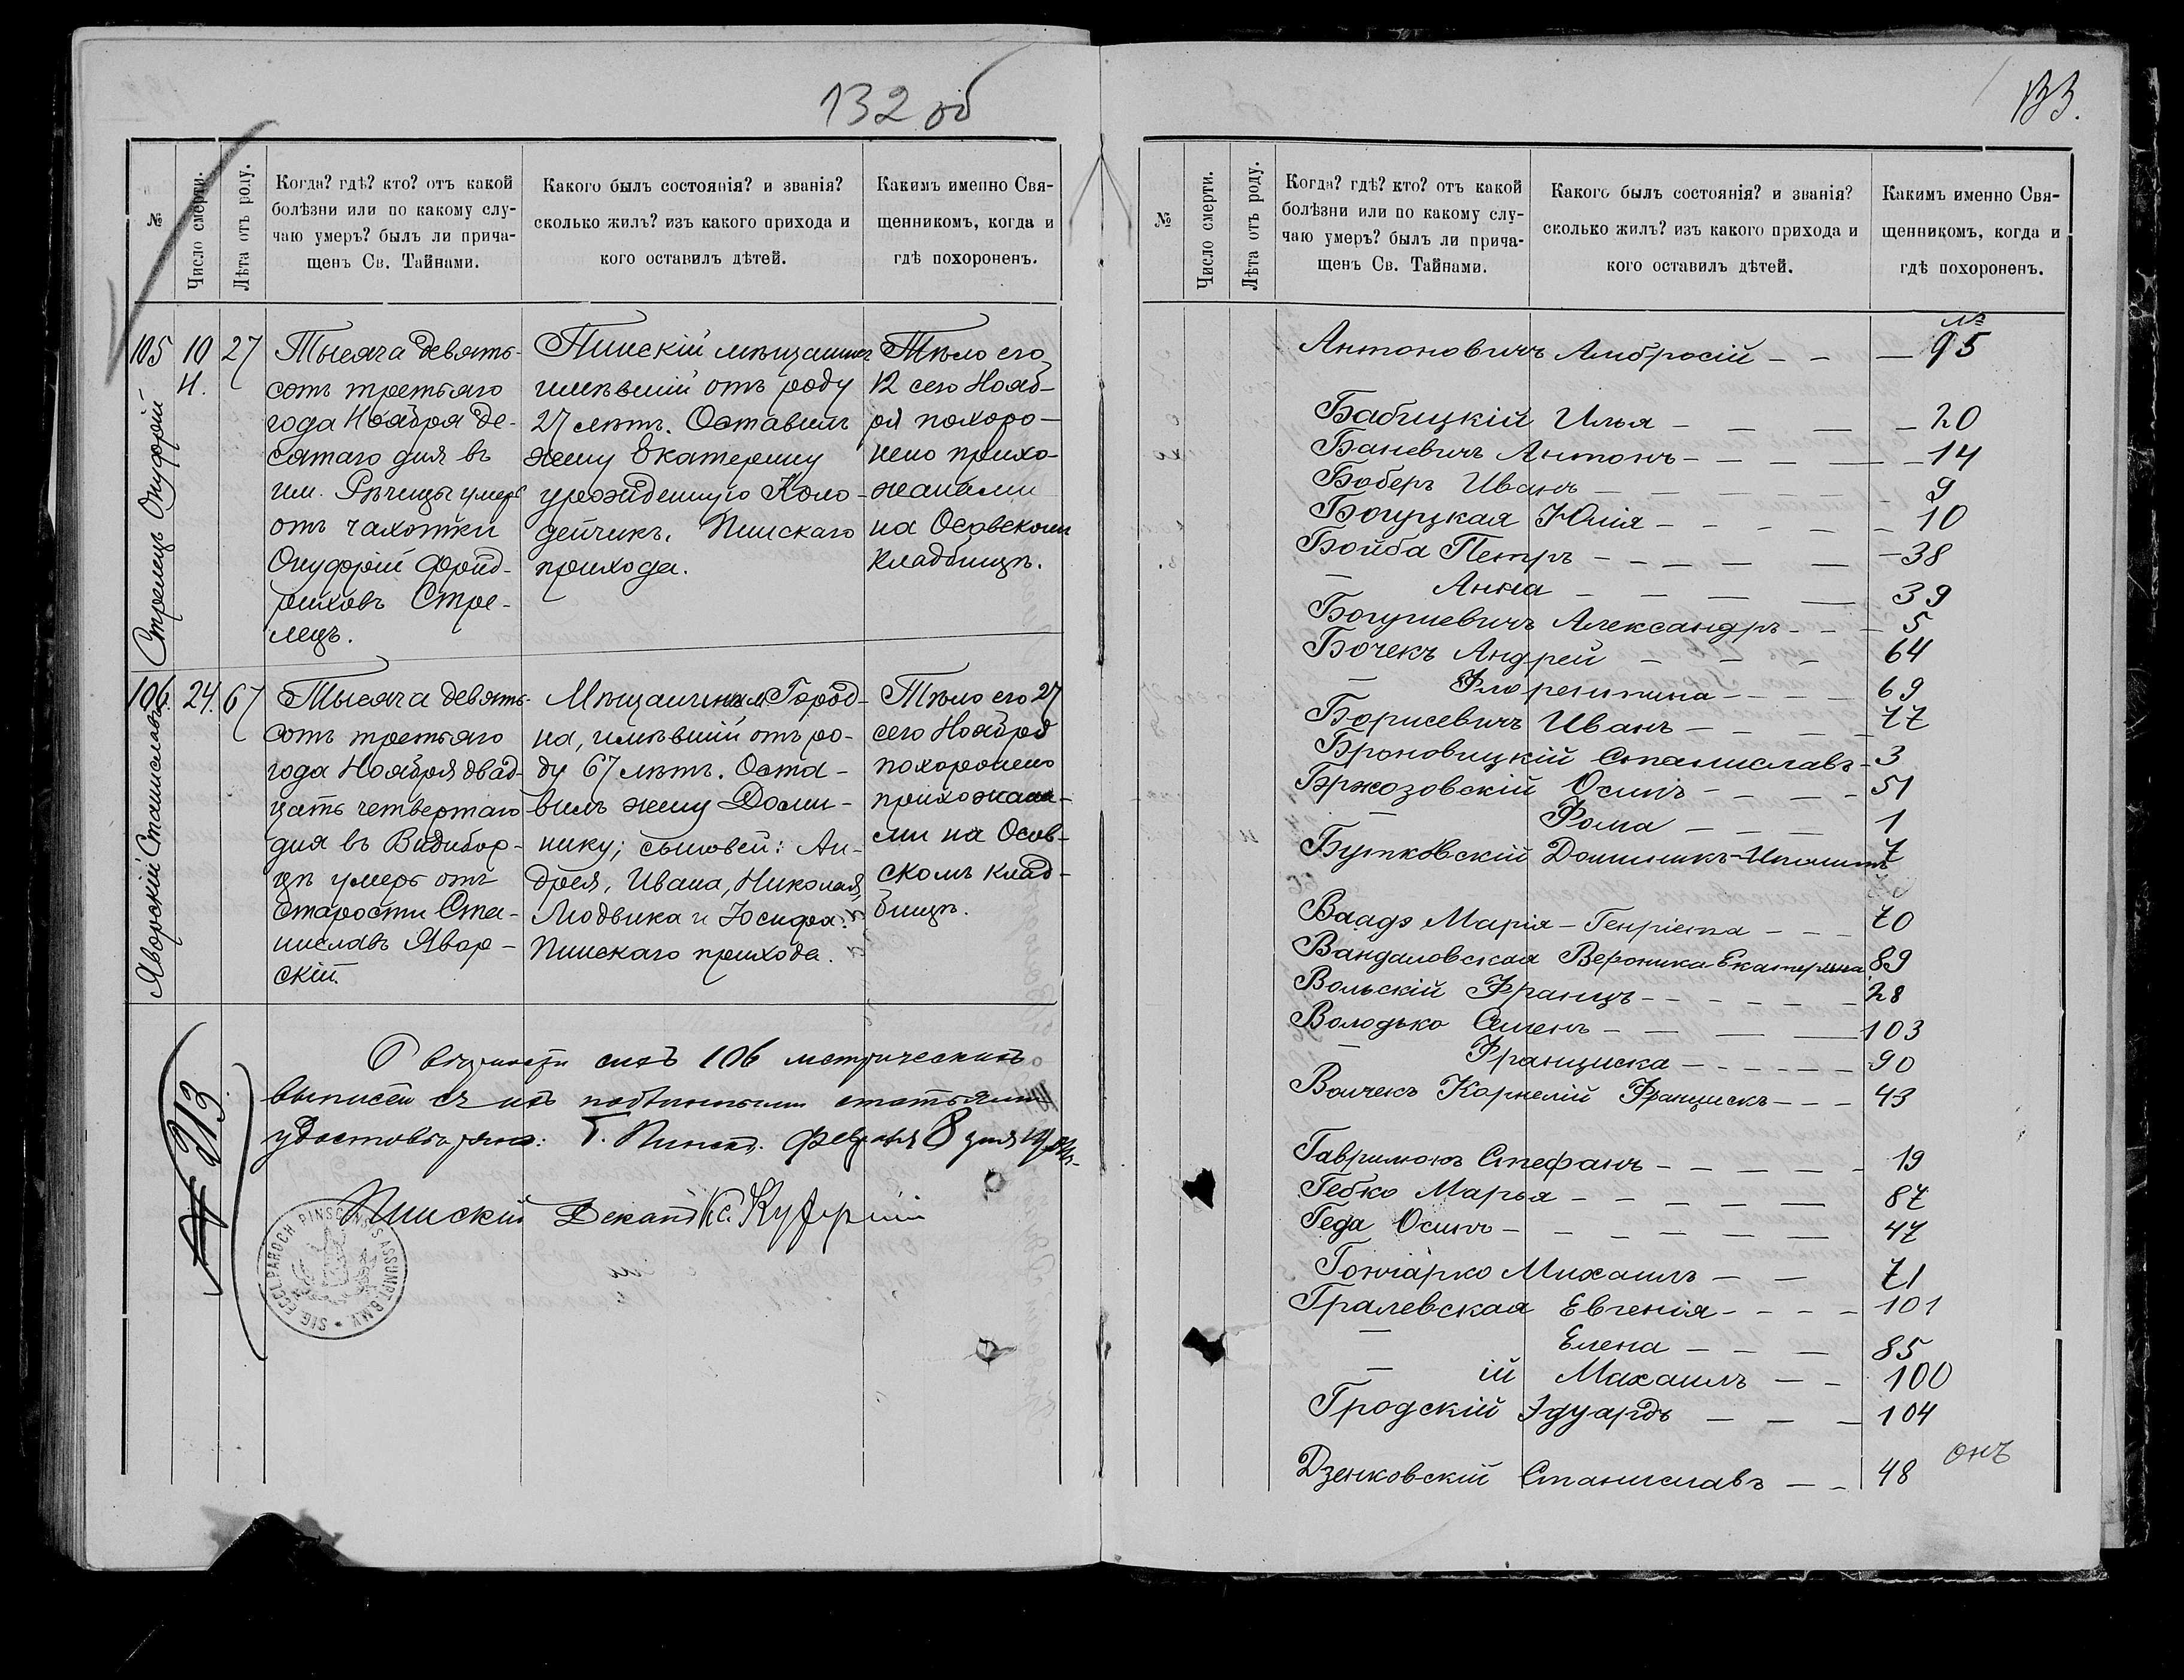 132 об
№
Число смерти.
Лѣта отъ роду.
Когда? гдѣ? кто? отъ какой
болѣзни или по какому слу-
чаю умеръ? былъ ли прича-
щенъ Св. Тайнами.
Какого былъ состоянія? и званія?
сколько жилъ? изъ какого прихода и
кого оставилъ дѣтей.
Какимъ именно Свя-
щенникомъ, когда и
гдѣ похороненъ.
105
Стрелецъ Онуфрій
10
Н.
27
Тысяча девять-
сотъ третьяго
года Ноября де-
сятаго дня въ
им. Рѣчицы умеръ
отъ чахотки
Онуфрій Фрид-
риховъ Стре-
лецъ.
Пинскій мѣщанинъ
имѣвшій отъ роду
27 лѣтъ. Оставилъ
жену Екатерину
урожденную Коло-
дейчикъ. Пинскаго
прихода.
Тѣло его
12 сего Нояб-
ря похоро-
нено прихо-
жанами
на Осовскомъ
кладбищѣ.
106
Яворскій Станиславъ
24.
67
Тысяча девять-
сотъ третьяго
года Ноября двад-
цать четвертаго
дня въ Видибор-
цѣ умеръ отъ
старости Ста-
ниславъ Явор-
скій.
Мѣщанинъ м. Город-
на, имѣвшій отъ ро-
ду 67 лѣтъ. Оста-
вилъ жену Доми-
нику; сыновей: Ан-
дрея, Ивана, Николая,
Людвика и Іосифа.
Пинскаго прихода.
Тѣло его 27
сего Ноября
похоронено
прихожана-
ми на Осов-
скомъ клад-
бищѣ.
213
сихъ 106 метрическихъ
выписей съ ихъ подлинными статьями
удостовѣряю: Г. Пинскъ. Февраля 8 дня
Пинскій Деканъ Кс.
SIG. ECCL. PAROCH PINSCENSIS ASSUMPT. B.M.V.
133.
№
Число смерти.
Лѣта отъ роду.
Когда? гдѣ? кто? отъ какой
болѣзни или по какому слу-
чаю умеръ? былъ ли прича-
щенъ Св. Тайнами.
Какого былъ состоянія? и званія?
сколько жилъ? изъ какого прихода и
кого оставилъ дѣтей.
Какимъ именно Свя-
щенникомъ, когда и
гдѣ похороненъ.
№
Антоновичъ Амбросій — — — 95
Бабицкій Илья — — — — 20
Баневичъ Антонъ — — — — 14
Боберъ Иванъ — — — — — 9
Богуцкая Юлія — — — — — 10
Бойба Петръ — — — — — 38
— Анна — — — — 39
Богушевичъ Александръ — — — 5
Бочекъ Андрей — — — 64
— Флорентина — — — — 69
Борисевичъ Иванъ — — — — 77
Броновицкій Станиславъ — 3
Бржозовскій Осипъ — — — — 51
— Фома — — — 1
Бутковскій Доминикъ-Игнатій 7
Ваадэ Марія-Генріета — — — 70
Вандаловская Вероника Екатерина 89
Вольскій Францъ — — — — — 28
Володько Семенъ — — — — 103
— Франциска — — — — — 90
Волчекъ Корнелій Францискъ — — — 43
Гаврилюкъ Стефанъ — — — — — 19
Гебко Марья — — — — — 87
Геда Осипъ — — — — — — 47
Гончарко Михаилъ — — 71
Гралевская Евгенія — — — — 101
— Елена — — — 85
— ій Михаилъ — — 100
Гродскій Эдуардъ — — — 104
Дзенковскій Станиславъ — — 48
онъ